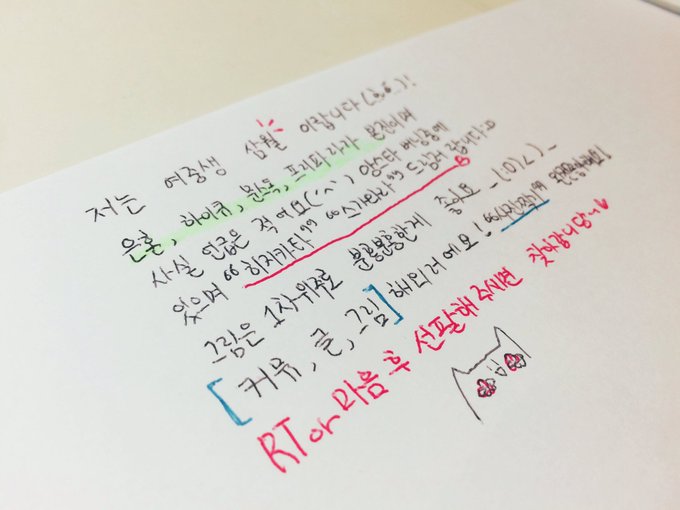 저는 여중생 삼월 이랍니다(ㅎ6_6_)!
은혼, 하이큐, 문스독, 프리파라가 본진이며
사실 언급은 적어요(´^`) 앙스타 버닝중에
있으며 "히지카타" "스가와라" 드림러 랍니다:D
그림은 1차위주로 분필분홍한게 좋아요_(:3」∠)_
[커뮤, 글, 그림] 해외러에요!
RT or 마음 후 선팔해주시면 찾아갑니당~!